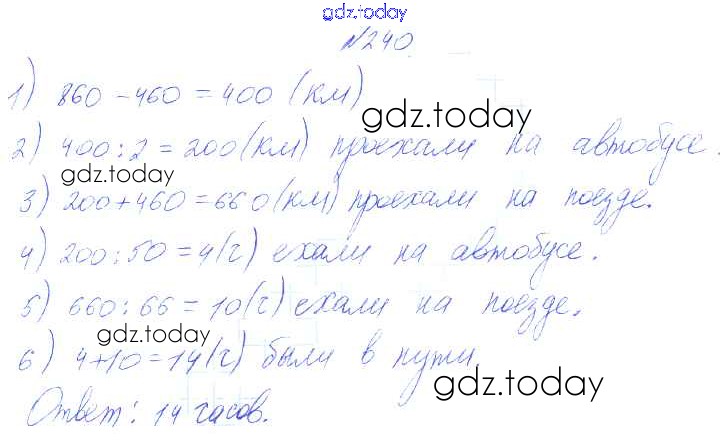 gdz.today
№240.
1) 860 - 460 = 400 (км)
gdz.today
2) 400 : 2 = 200 (км) проехали на автобусе.
gdz.today
3) 200 + 460 = 660 (км) проехали на поезде.
4) 200 : 50 = 4 (ч) ехали на автобусе.
5) 660 : 66 = 10 (ч) ехали на поезде.
gdz.today
6) 4 + 10 = 14 (ч) были в пути.
gdz.today
Ответ: 14 часов.